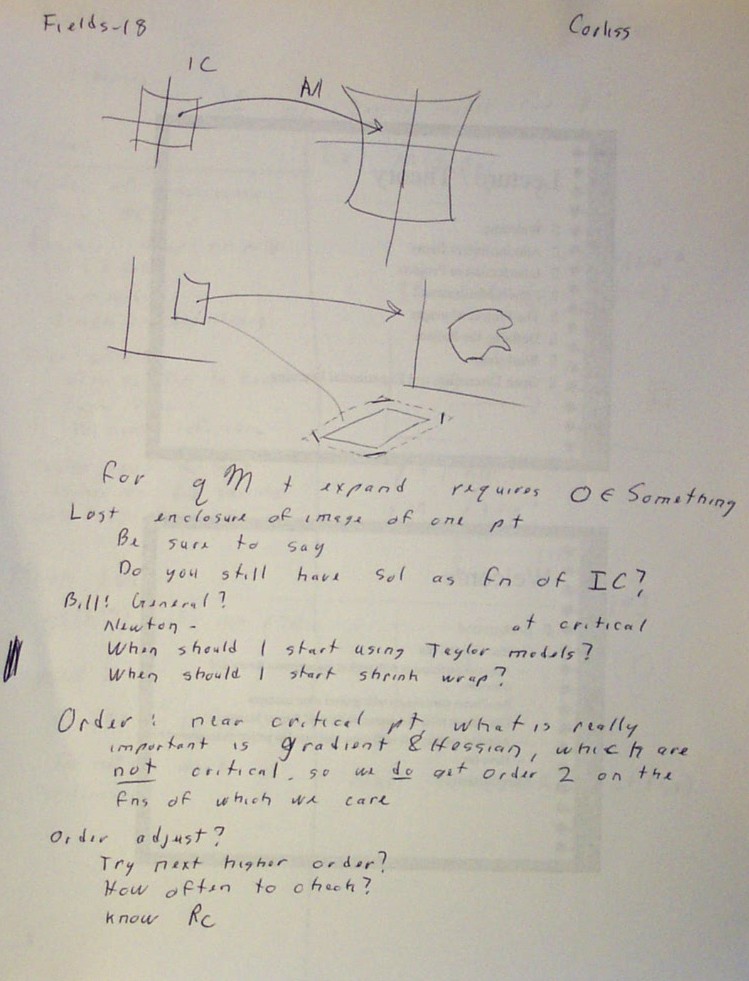 Fields-18
Corliss
IC
M
for q M + expand requires 0 ∈ Something
Lost enclosure of image of one pt
Be sure to say
Do you still have sol as fn of IC?
Bill: General?
Newton - at critical
When should I start using Taylor models?
When should I start shrink wrap?
Order: near critical pt, what is really
important is gradient & Hessian, which are
not critical, so we do get order 2 on the
fns of which we care
Order adjust?
Try next higher order?
How often to check?
know Rc
Lecture
Theory